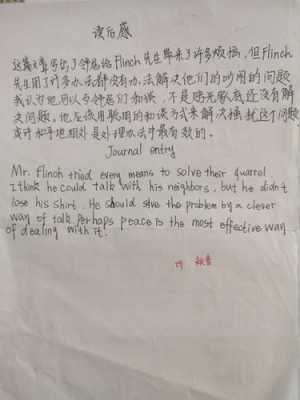 读后感
这篇文章写的了邻居给Flinch先生带来了许多烦恼，但Flinch
先生用了许多办法都没有办法解决他们的吵闹的问题
我认为他可以与邻居们和谈，不是赔光家底还没有解
决问题，他应该用聪明的和谈方式来解决骚扰这个问题
或许和平地相处是处理办法中最有效的。
Journal entry
Mr. Flinch tried every means to solve their quarrel
I think he could talk with his neighbors, but he didn't
lose his shirt. He should slve the problem by a clever
way of talk. Perhaps peace is the most effective way
of dealing with it!